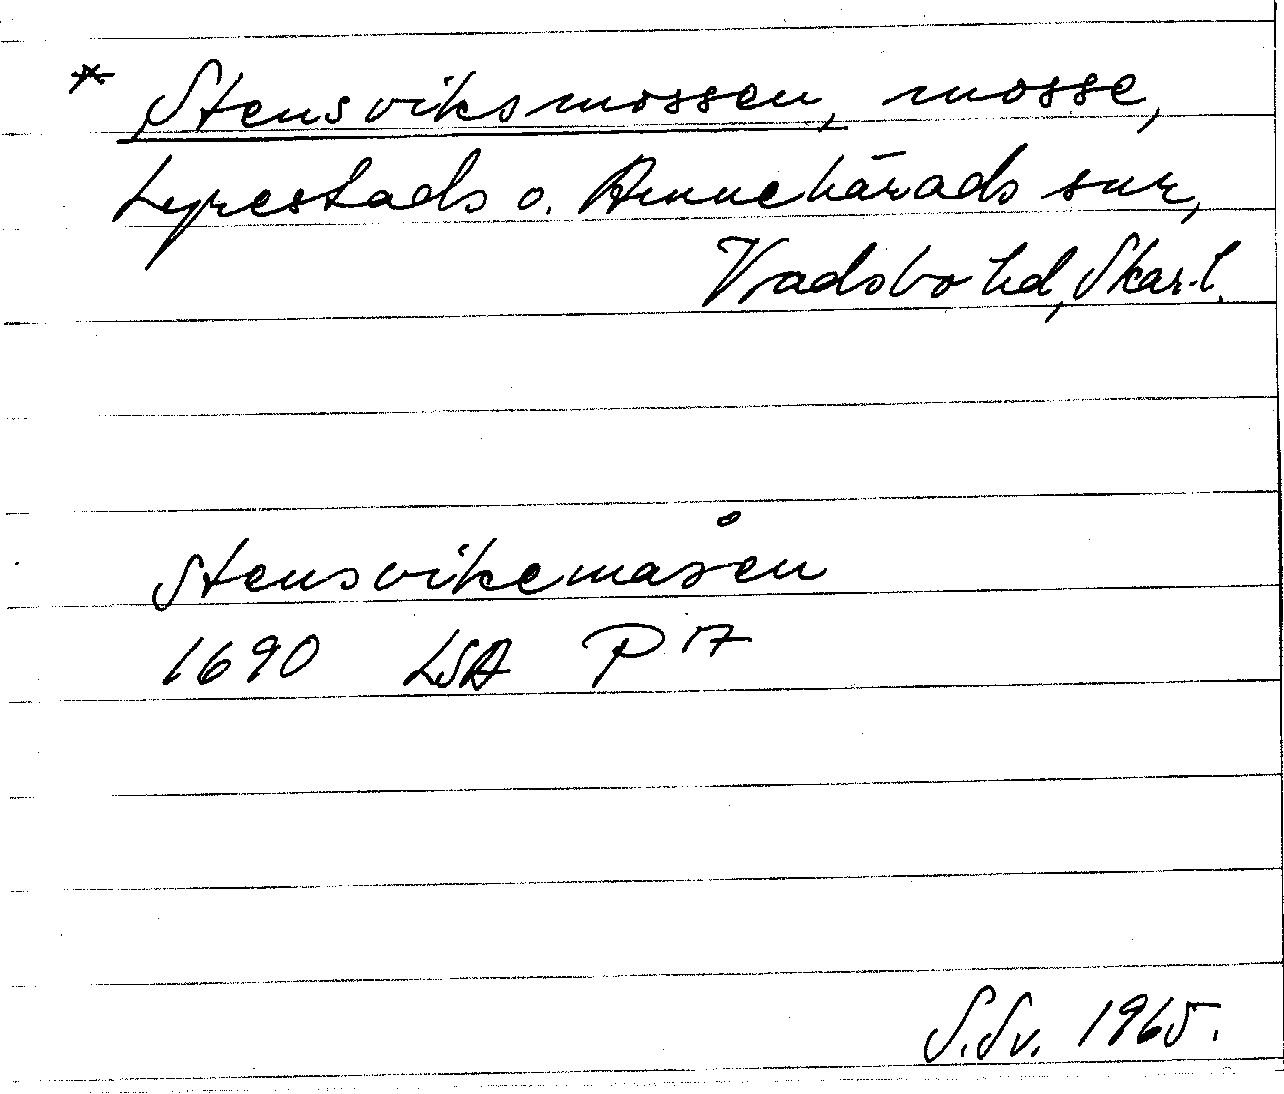 * Stensviksmossen, mosse,
Lyrestads o. Amnehärads snr,
Vadsbo hd, Skar. l.
Stensvikemåsen
1690 LSA P 17
S. Sv. 1965.